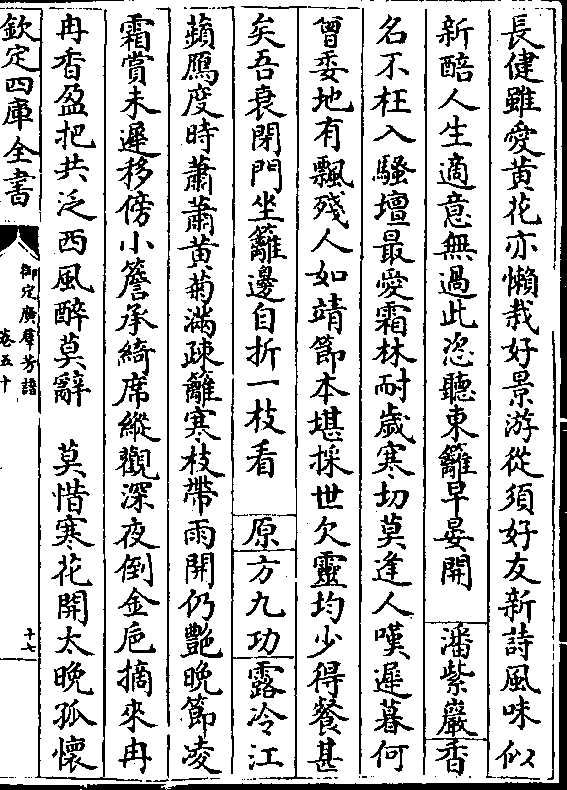 長健雖愛黄花亦懶栽好景游從須好友新詩風味似
新醅人生適意無過此恣聽東籬早晏開　潘紫巖香
名不枉入騷壇最愛霜林耐歲寒切莫逢人嘆遲暮何
曾委地有飄殘人如靖節本堪採世欠靈均少得餐甚
矣吾衰閉門坐籬邊自折一枝看　原方九功露冷江
蘋鴈度時蕭蕭黄菊滿疎籬寒枝帶雨開仍艷晚節凌
霜賞未遲移傍小簷承綺席縱觀深夜倒金巵摘來冉
冉香盈把共泛西風醉莫辭　莫惜寒花開太晚孤懷
欽定四庫全書
御定廣羣芳譜
卷五十
十七